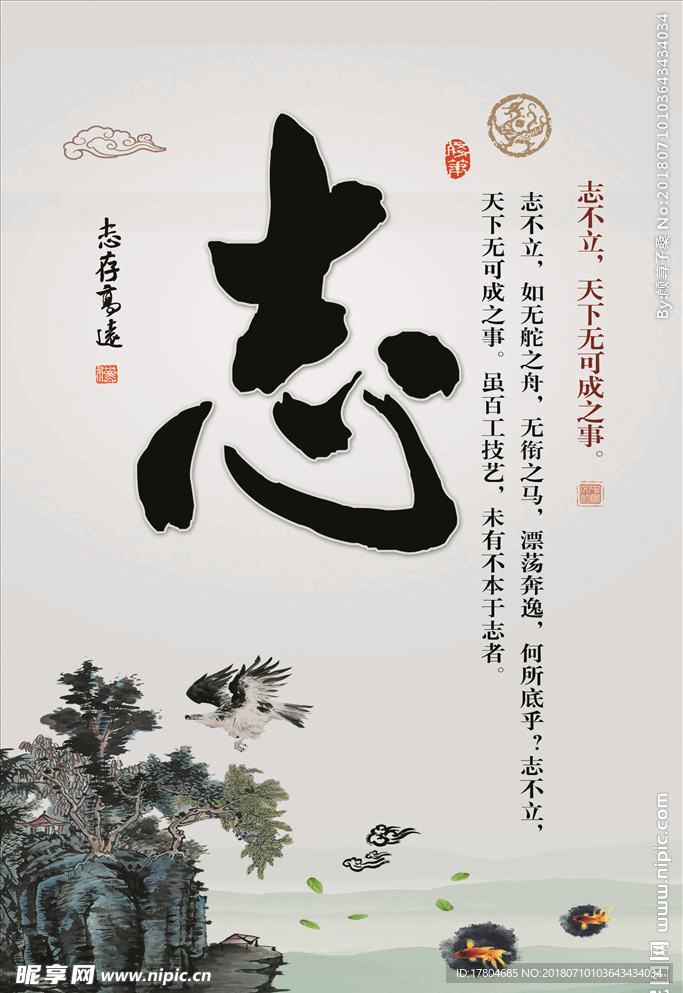 志不立，天下无可成之事。
志不立，如无舵之舟，无衔之马，漂荡奔逸，何所底乎？志不立，
天下无可成之事。虽百工技艺，未有不本于志者。
志
志存高遠
By:颜享子桑 No:20180710103643434034
www.nipic.com
昵享网 www.nipic.cn
ID:17804685 NO:20180710103643434034